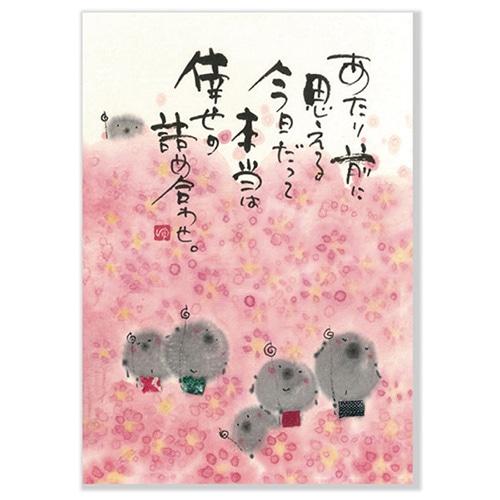 あたり前に
思える
今日だって
本当は
倖せの
詰め合わせ。